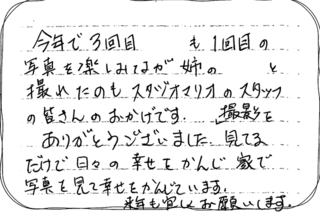 今年で3回目 も1回目の
写真を楽しみてるが 姉の と
撮れたのもスタジオマリオのスタッフ
の皆さんのおかげです. 撮影を
ありがとうございました. 見てる
だけで日々の幸せをかんじ 家で
写真を見て幸せをかんじています.
来年も宜しくお願いします.